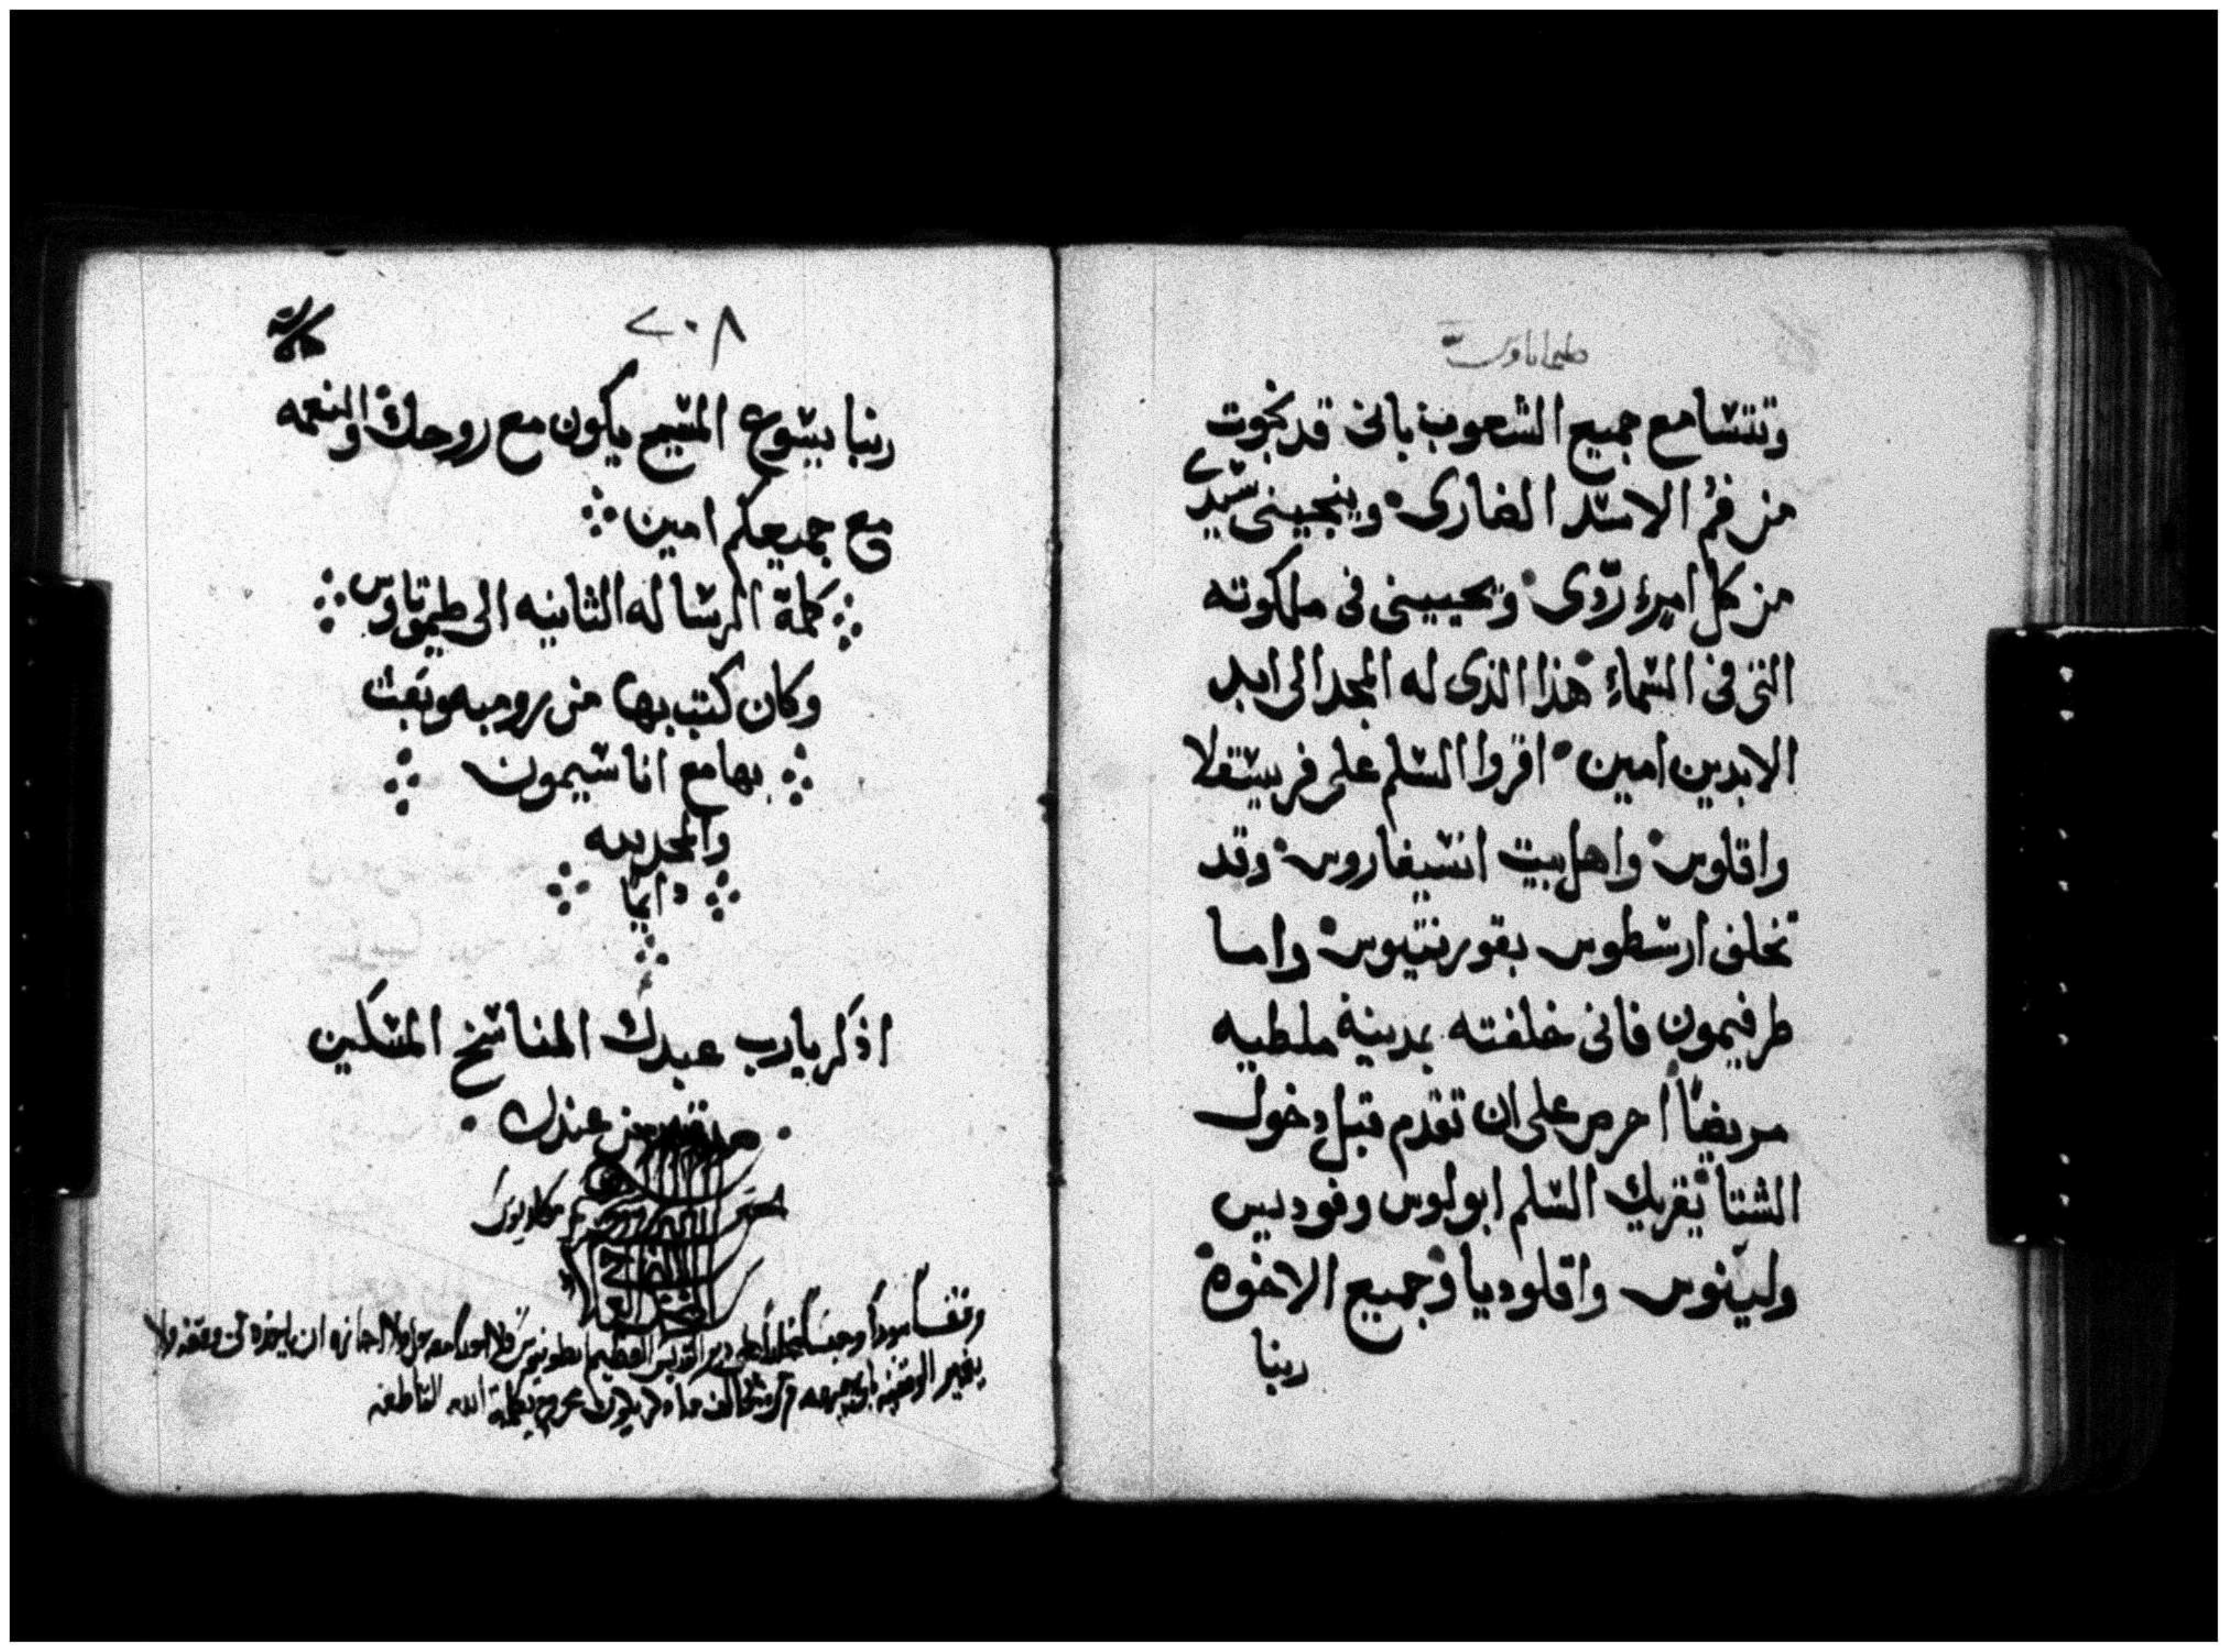 طيماتاوس
وتتسامع جميع الشعوب بانى قد نجوت
من فم الاسد الضارى وينجينى سيدى
من كل امرء ردّى ويحيينى فى ملكوته
التى فى السماء هذا الذى له المجد الى ابد
الابدين امين اقروا السلم على فريسقلا
واقلوس واهل بيت انسيفاروس وقد
تخلف ارسطوس بقورنتيوس واما
طرفيمون فانى خلفته بمدينة ملطيه
مريضًا احرص على ان تقدم قبل دخول
الشتا يقريك السلم ابولوس وفوديس
ولينوس واقلوديا وجميع الاخوة
ربنا
٢٠٨
ربنا يسوع المسيح يكون مع روحك والنعمه
مع جميعكم امين
كملة الرساله الثانيه الى طيموتاوس
وكان كتب بها من روميه وبعث
بها مع اناسيمون
والمجد لله
دايمًا
اذكر يارب عبدك الناسخ المسكين
من عندك
وقفا موبدا وحبسا مخلدا على دير القديس العظيم انطونيوس
بكلمة الله القاطعه